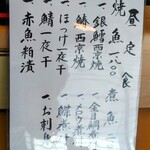 昼定食
焼魚 一八〇〇
一、銀鱈西京焼
一、鰆西京焼
一、ほっけ一夜干
一、鯖一夜干
一、赤魚粕漬
煮魚
一、金目鯛
一、お刺身